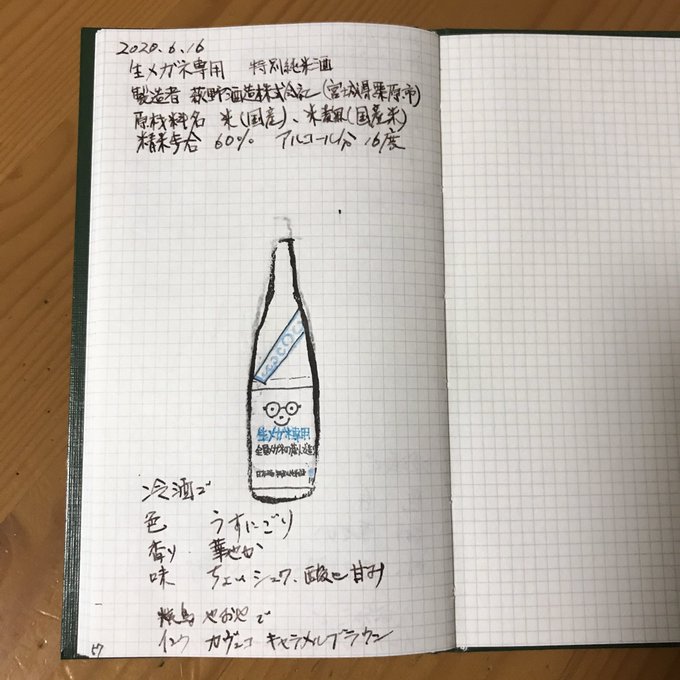 2020.6.16
生メガネ専用 特別純米酒
製造者 萩野酒造株式会社(宮城県栗原市)
原材料名 米(国産)、米麹(国産米)
精米歩合 60% アルコール分 16度
生メガネ専用
冷酒で
色 うすにごり
香り 華やか
味 ちょいシュワ、酸と甘み
焼鳥 やおやで
インク カヴェコ キャラメルブラウン